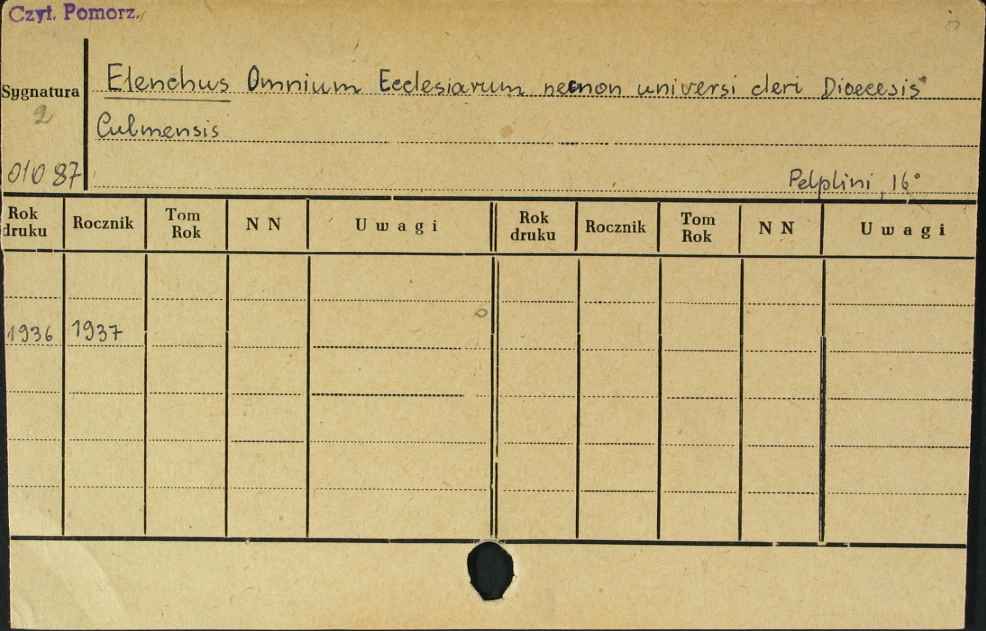 Czyt. Pomorz.
Sygnatura
2
010 87
Elenchus Omnium Ecclesiarum necnon universi cleri Dioecesis
Culmensis
Pelplini, 16°
Rok druku Rocznik Tom Rok N N Uwagi Rok druku Rocznik Tom Rok N N Uwagi
1936 1937